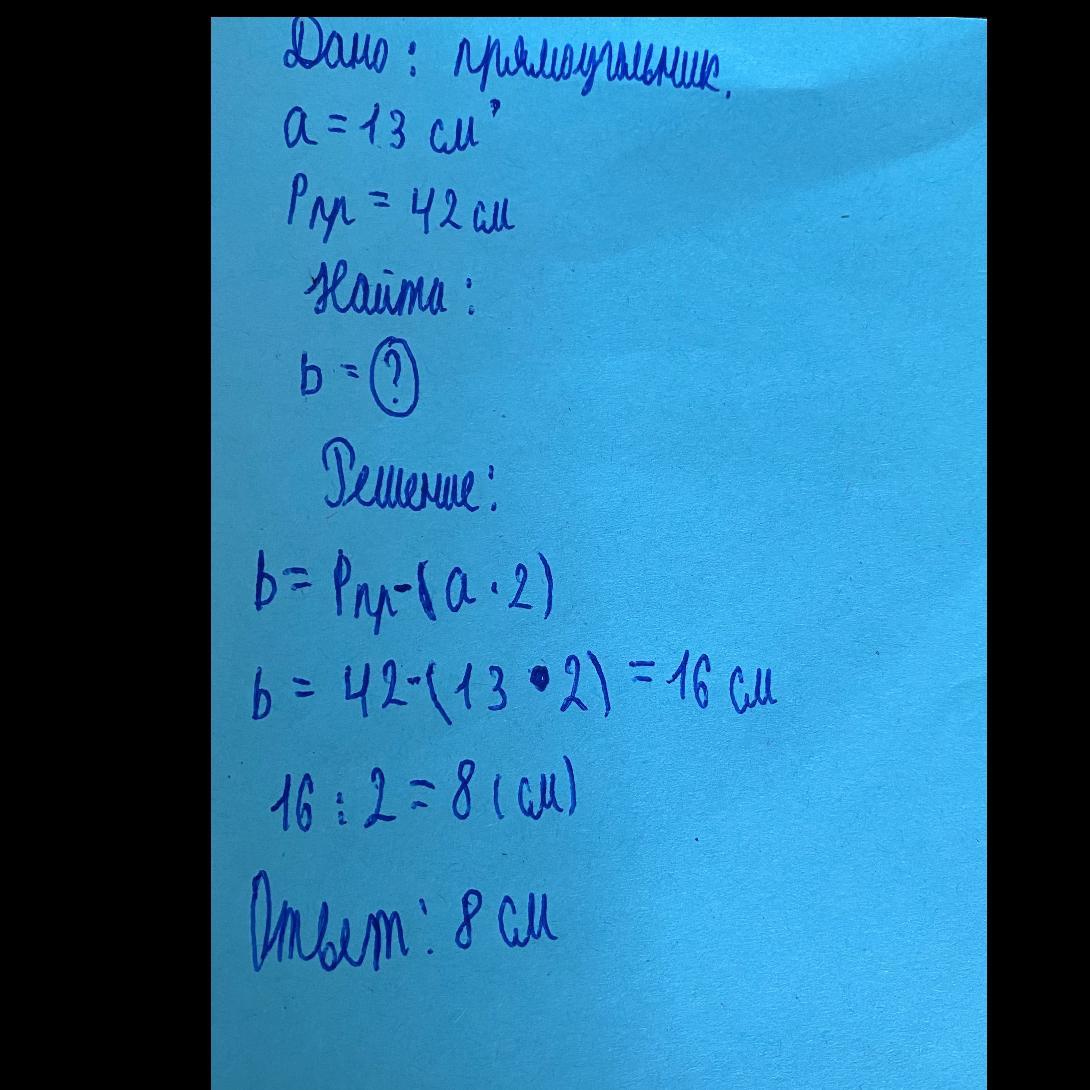 Дано: прямоугольник,
a = 13 см
Pпр = 42 см
Найти:
b = ?
Решение:
b = Pпр-(a · 2)
b = 42-(13 • 2) = 16 см
16 : 2 = 8 (см)
Ответ: 8 см